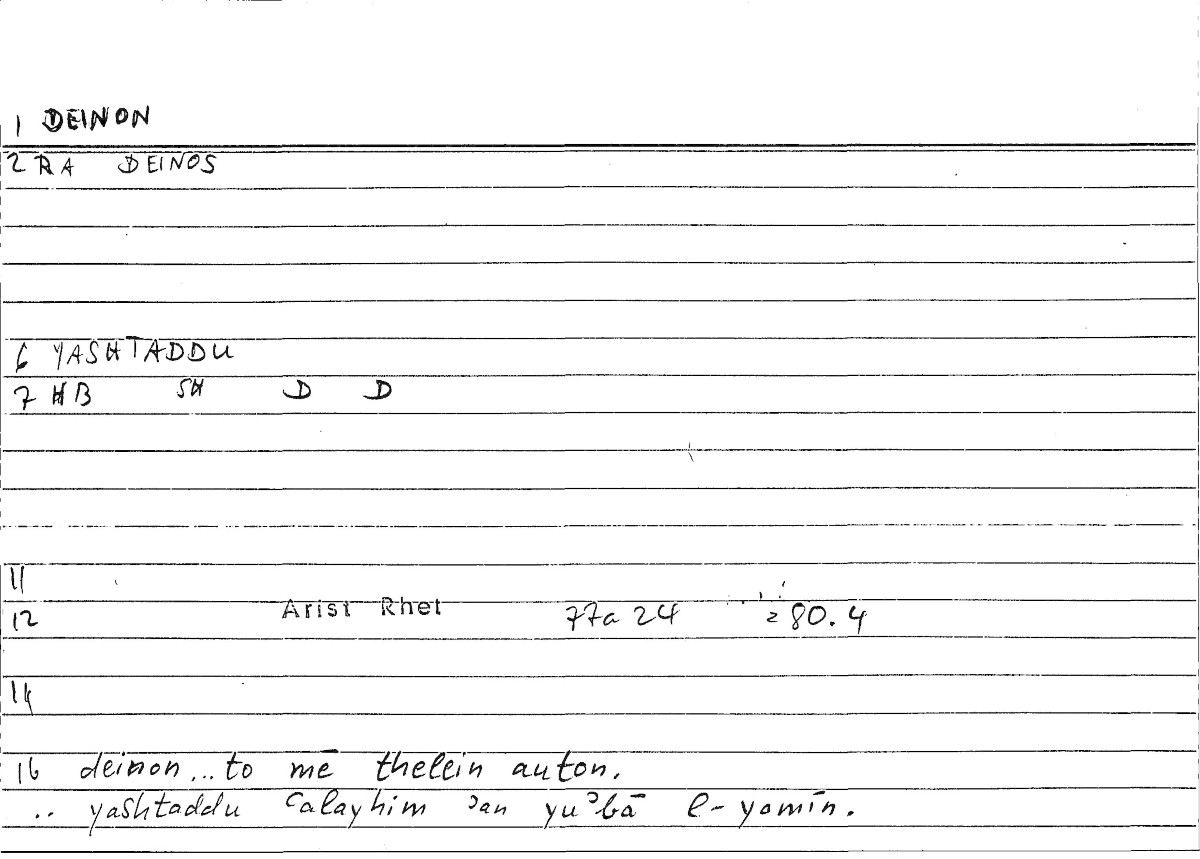 1 DEINON
2 RA DEINOS
6 YASHTADDU
7 HB SH D D
11
12 Arist Rhet 77a 24 = 80.4
14
16 deinon... to mē thelein auton.
.. yashtaddu ʿalayhim ʾan yuʾbā l-yamīn.